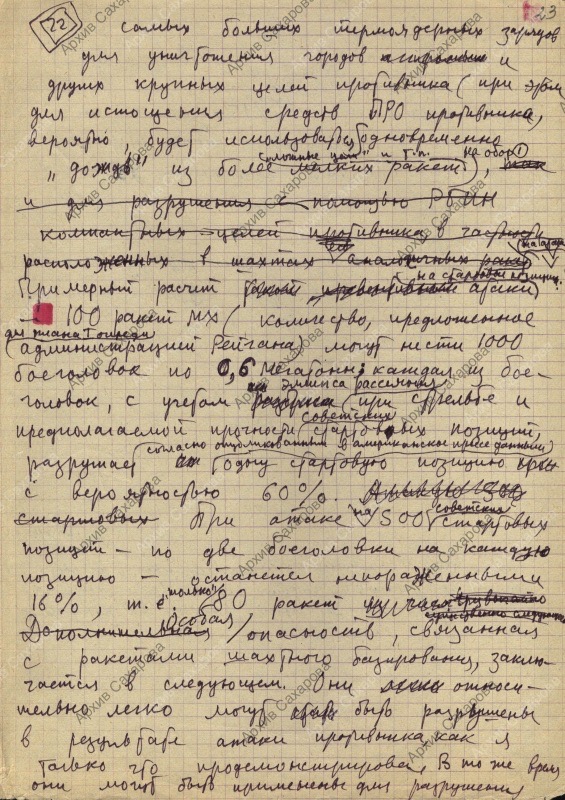 22
23
самых больших термоядерных зарядов
для уничтожения городов и
других крупных целей противника (при этом
для истощения средств ПРО противника,
вероятно, будет использоваться одновременно
"ложные цели" и т.п.
"дождь" из более мелких ракет),
и для разрушения с помощью РБИН
компактных целей противника в частности
расположенных в шахтах аналогичных ракет
на стартовых позициях.
Примерный расчет атаки
— 100 ракет МХ (количество, предложенное
для плана Томпсона
администрацией Рейгана) могут нести 1000
боеголовок по 0,6 мегатонн; каждая из бое-
эллипса рассеяния
головок, с учетом при стрельбе и
советских
предполагаемой прочности стартовых позиций,
согласно опубликованным в американской прессе данным
разрушает одну стартовую позицию
с вероятностью 60%.
стартовых При атаке на 500 советских стартовых
позиций – по две боеголовки на каждую
позицию – останется непораженными
16%, т.е. "только" 80 ракет
Дополнительная Особая опасность, связанная
с ракетами шахтного базирования, заклю-
чается в следующем. Они относи-
тельно легко могут быть разрушены
в результате атаки противника как я
только что продемонстрировал. В то же время
они могут быть применены для разрушения
Архив Сахарова